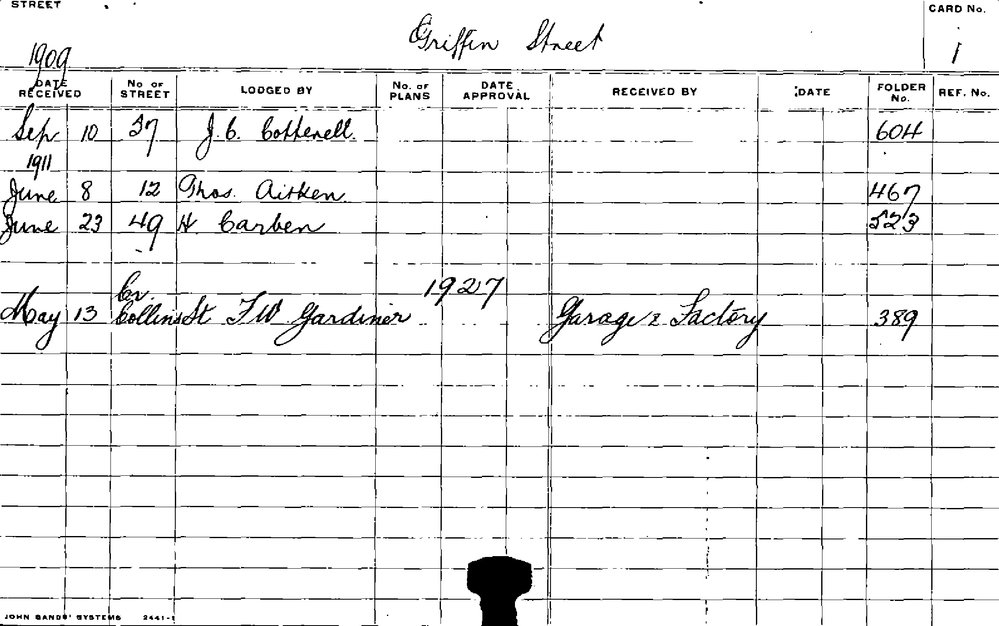 STREET
Griffin Street
CARD No.
1
1909
DATE RECEIVED No OF STREET LODGED BY No. OF PLANS DATE APPROVAL RECEIVED BY DATE FOLDER No. REF. No.
Sep. 10 37 J. C. Cotterell. 604
1911
June 8 12 Thos. Aitken 467
June 23 49 H. Carben 523
1927
May 13 Cr. Collins St. F W Gardiner Garage & Factory 389
JOHN SANDS' SYSTEMS 2441-1